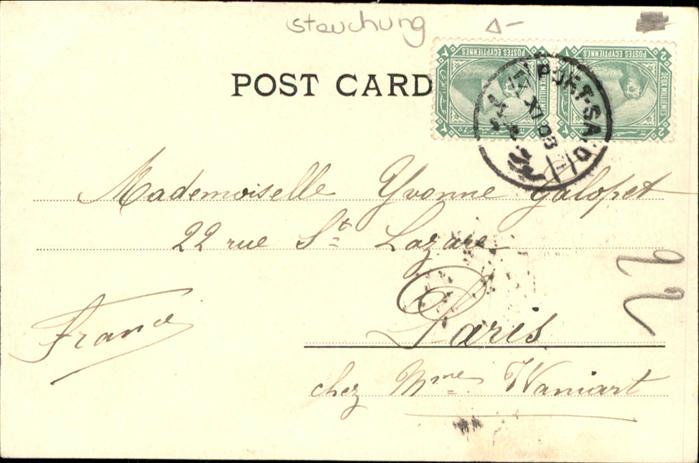 Stauchung
POST CARD
POSTES EGYPTIENNES
POSTES EGYPTIENNES
PORT-SAID
XI 03
Mademoiselle Yvonne Galopet
22 rue St Lazare
Paris
France
chez Mme Waniart
22